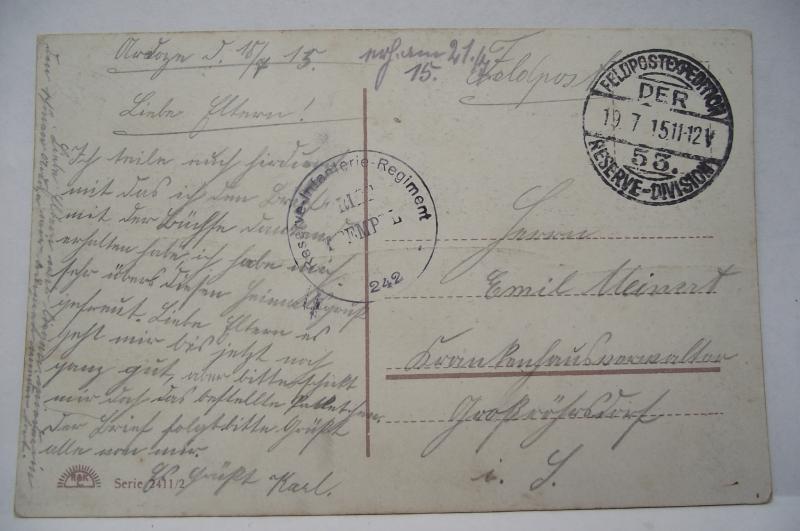 Ardoye d. 18/7 15.
erh. am 21./7.
15.
Feldpost
Liebe Eltern!
Ich teile euch hirdurch
mit das ich den Brief
mit der Büchse dankend
erhalten habe ich habe mich
sehr übers diesen Heimatsgruß
gefreut. Liebe Eltern es
geht mir bis jetzt noch
ganz gut, aber bitte schickt
mir doch das bestellte
Der Brief folgt bitte Grüßt
alle von mir.
Es Grüßt Karl.
FELDPOSTEXPEDITION
DER
19. 7 15 11-12V
53.
RESERVE-DIVISION
Reserve-Infanterie-Regiment
BRIEF
STEMPEL
242
Herrn
Emil Meinert
Krankenhausverwalter
Großröhrsdorf
i. S.
R&K
Serie 2411/2